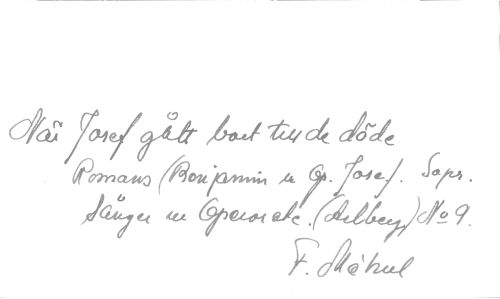 När Josef gått bort till de döde
Romans (Benjamin u Op. Josef. Sopr.
Sånger u Operor etc. (Dilbeg) No 9.
F. Méhul